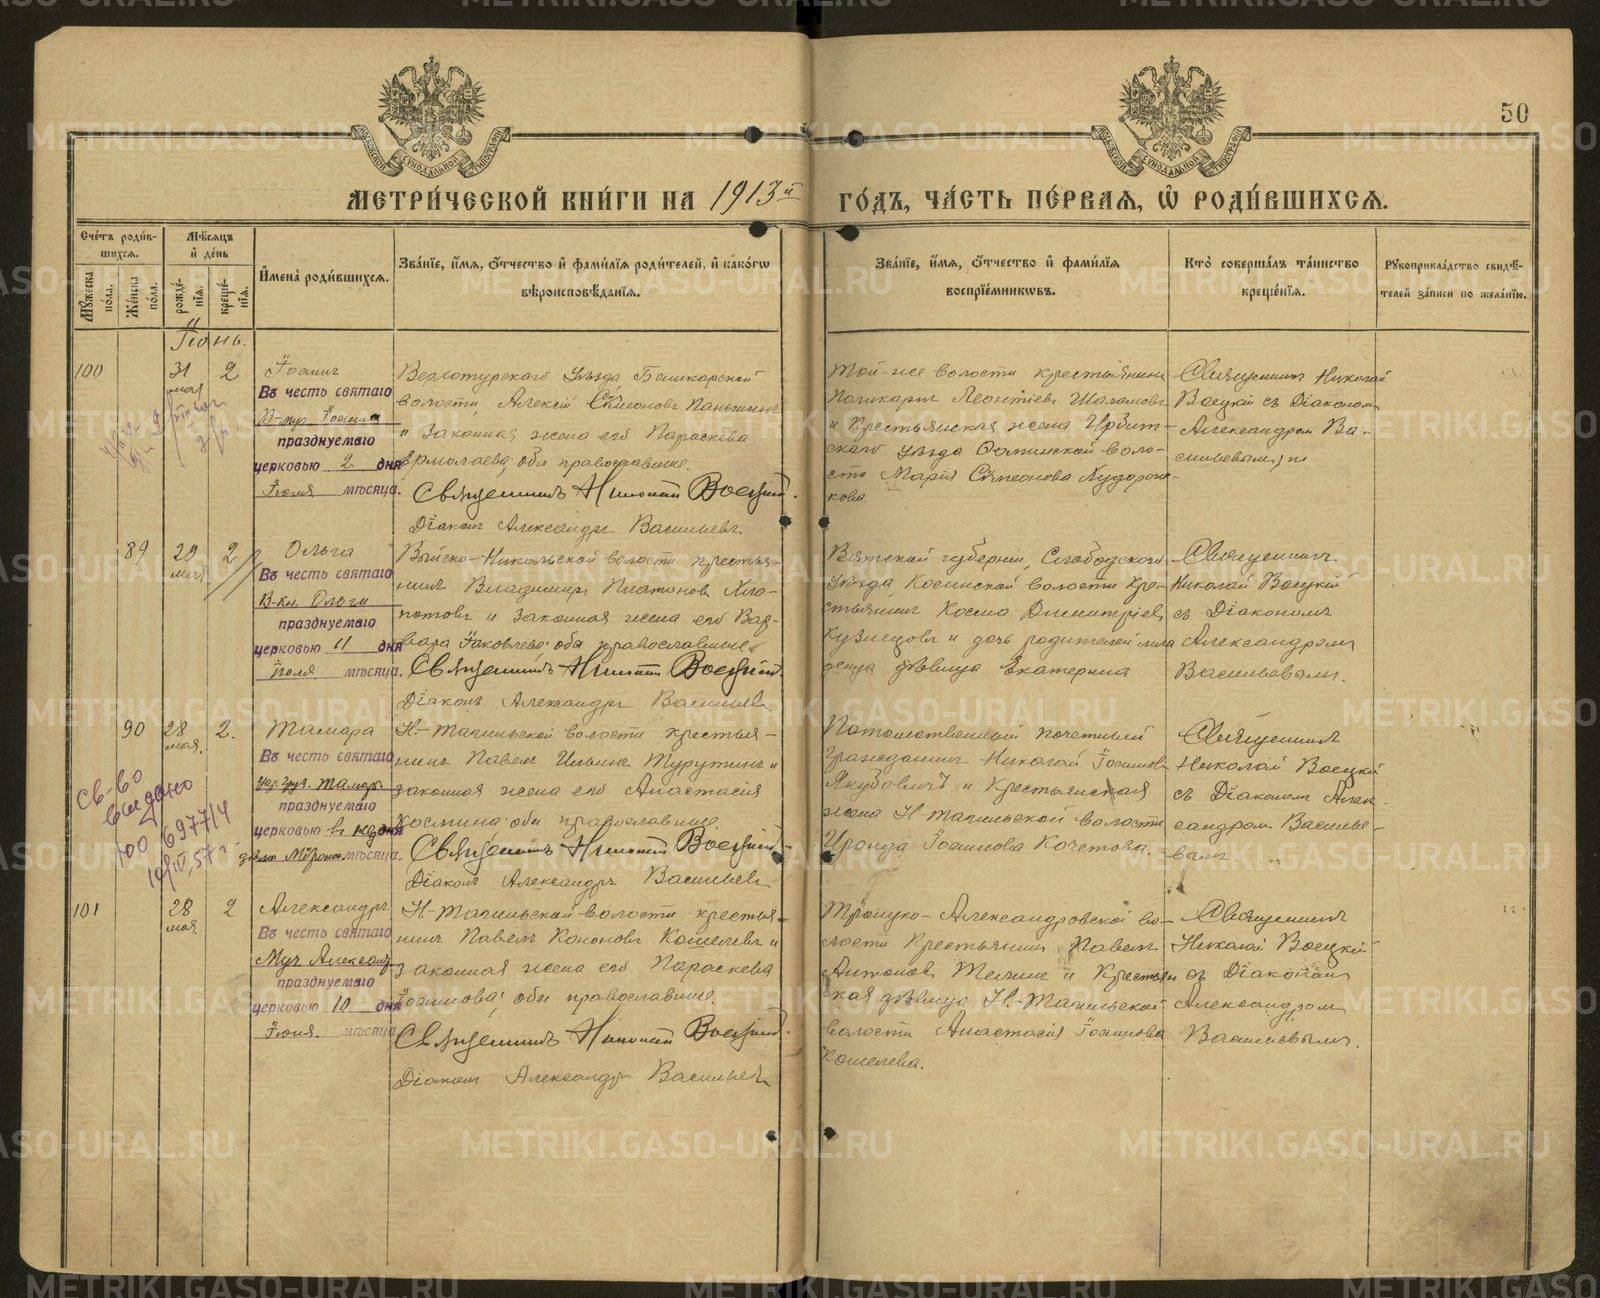 50
МЕТРИ́ЧЕСКОЙ КНИ́ГИ НА 1913й ГО́ДЪ, ЧА́СТЬ ПЕ́РВАЯ, Ѽ РОДИ́ВШИХСЯ.
Сче́тъ роди́в-
шихся.
Мѣ́сяцъ
и҆ де́нь
Мꙋ́жеска по́ла.
Же́нска по́ла.
рожде́-нїя.
креще́-нїя.
И҆мена̀ роди́вшихся.
Зва́нїе, и҆́мя, ѻ҆́тчество и҆ фами́лїя роди́телей, и҆ како́гѡ
вѣроисповѣ́данїя.
Зва́нїе, и҆́мя, ѻ҆́тчество и҆ фами́лїя
воспрїе́мникѡвъ.
Кто̀ соверша́лъ та́инство
креще́нїя.
Рꙋкоприкла́дство свидѣ́-
телей за́писи по жела́нїю.
Іюнь.
100
31
мая
2
Іоаннъ
Въ честь святаго
Іоанна
празднуемаго
церковью 2 дня
Іюня мѣсяца.
Верхотурскаго уѣзда Башкарской
волости, Алексій Сѵмеоновъ Паньшинъ
и законная жена его Параскева
Ермолаева; оба православные.
Священникъ Николай Воецкій.
Діаконъ Александръ Васильевъ
Той-же волости крестьянинъ
Поликарпъ Леонтіевъ Шаламовъ
и крестьянская жена Ирбит-
скаго уѣзда волос-
сти Марія Сѵмеонова Худорож-
кова
Священникъ Николай
Воецкій съ Діакономъ
Александромъ Ва-
сильевымъ
89
29
мая
2
Ольга
Въ честь святаго
В.-Кн. Ольги
празднуемаго
церковью 11 дня
Іюля мѣсяца.
Выйско-Никольской волости крестья-
нинъ Владиміръ Платоновъ Хло-
потовъ и законная жена его Вар-
вара Іаковлева; оба православные.
Священникъ Николай Воецкій.
Діаконъ Александръ Васильевъ
Вятской губерніи, Слободскаго
уѣзда, Косинской волости кре-
стьянинъ Косма Димитріевъ
Кузнецовъ и дочь родителей мла-
денца дѣвица Екатерина
Священникъ
Николай Воецкій
съ Діакономъ
Александромъ
Васильевымъ.
90
28
мая.
2.
Тамара
Въ честь святаго
Тамары
празднуемаго
церковью въ нед. дня
мѣсяца.
Н.-Тагильской волости крестья-
нинъ Павелъ Ильинъ Турутинъ и
законная жена его Анастасія
Космина; оба православные.
Священникъ Николай Воецкій.
Діаконъ Александръ Васильевъ
Потомственный почетный
гражданинъ Николай Іоанновъ
Якубовичъ и крестьянская
жена Н-Тагильской волости
Ираида Іоаннова Кочетова.
Священникъ
Николай Воецкій
съ Діакономъ Алек-
сандромъ Василье-
вымъ
Св-во
выдано
ЮО 697714
101
28
мая
2
Александръ
Въ честь святаго
Муч Александр
празднуемаго
церковью 10 дня
Іюня. мѣсяца
Н-Тагильской волости крестья-
нинъ Павелъ Кононовъ Кошелевъ и
законная жена его Параскева
Іоаннова; оба православные.
Священникъ Николай Воецкій.
Діаконъ Александръ Васильевъ
Троицко-Александровской во-
лости крестьянинъ Павелъ
Антоновъ и крестьян
ская дѣвица Н.-Тагильской
волости Анастасія Іоаннова
Кошелева.
Священникъ
Николай Воецкій
съ Діакономъ
Александромъ
Васильевымъ.